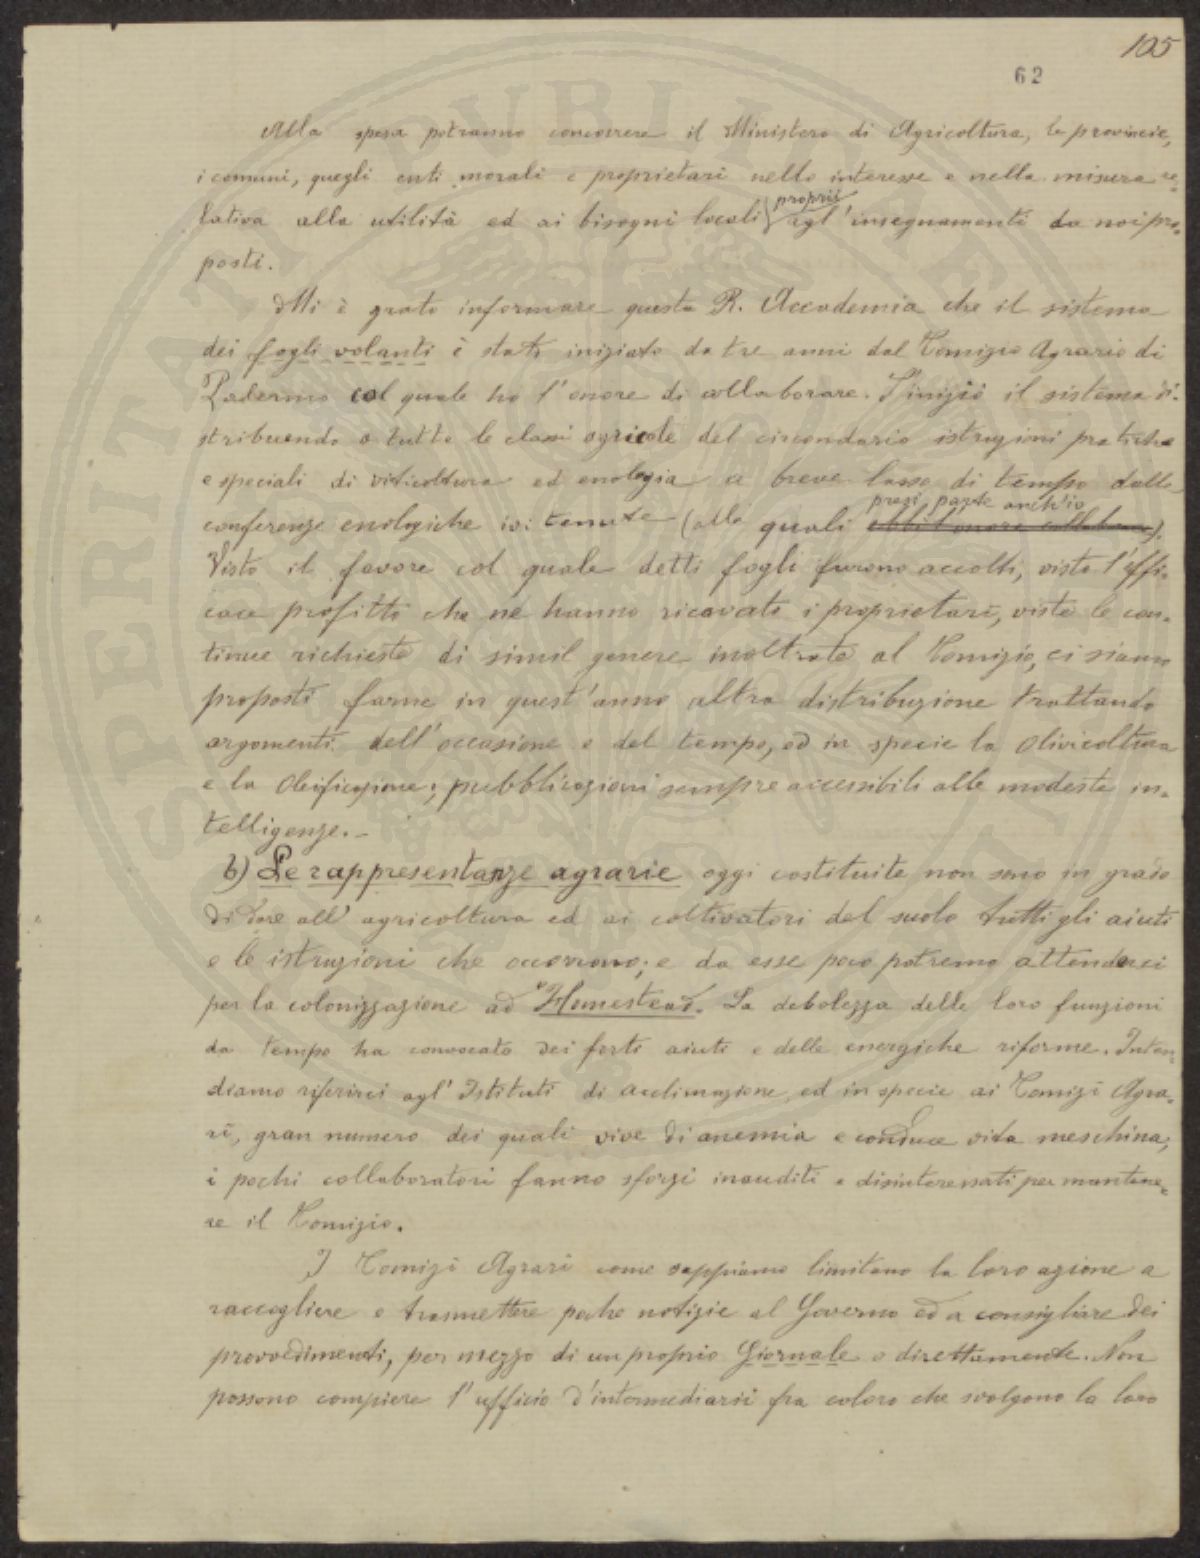 105
62
Alla spesa potranno concorrere il Ministero di Agricoltura, le provincie,
i comuni, quegli enti morali e proprietari nello interesse e nella misura re-
lativa alla utilità ed ai bisogni locali proprii agl'insegnamenti da noi pro-
posti.
Mi è grato informare questa R. Accademia che il sistema
dei fogli volanti è stato iniziato da tre anni dal Comizio Agrario di
Palermo col quale ho l'onore di collaborare. S'iniziò il sistema di-
stribuendo a tutte le classi agricole del circondario istruzioni pratiche
e speciali di viticoltura ed enologia a breve lasso di tempo dalle
conferenze enologiche ivi tenute (alle quali presi parte anch'io ebbi l'onore collaborare).
Visto il favore col quale detti fogli furono accolti, visto l'effi-
cace profitto che ne hanno ricavato i proprietarî, viste le con-
tinue richieste di simil genere inoltrate al Comizio, ci siamo
proposti farne in quest'anno altra distribuzione trattando
argomenti dell'occasione e del tempo, ed in specie la olivicoltura
e la oleificazione; pubblicazioni sempre accessibili alle modeste in-
telligenze.-
b) Le rappresentanze agrarie oggi costituite non sono in grado
di dare all'agricoltura ed ai coltivatori del suolo tutti gli aiuti
e le istruzioni che occorrono; e da esse poco potremo attenderci
per la colonizzazione ad Homestead. La debolezza delle loro funzioni
da tempo ha convocato dei forti aiuti e delle energiche riforme. Inten-
diamo riferirci agl'Istituti di acclimazione, ed in specie ai Comizî Agra-
rî, gran numero dei quali vive di anemia e conduce vita meschina;
i pochi collaboratori fanno sforzi inauditi e disinteressati per mantene-
re il Comizio.
I Comizî Agrarî come sappiamo limitano la loro azione a
raccogliere e trasmettere poche notizie al Governo ed a consigliare dei
provvedimenti, per mezzo di un proprio Giornale o direttamente. Non
possono compiere l'ufficio d'intermediarii fra coloro che svolgono la loro